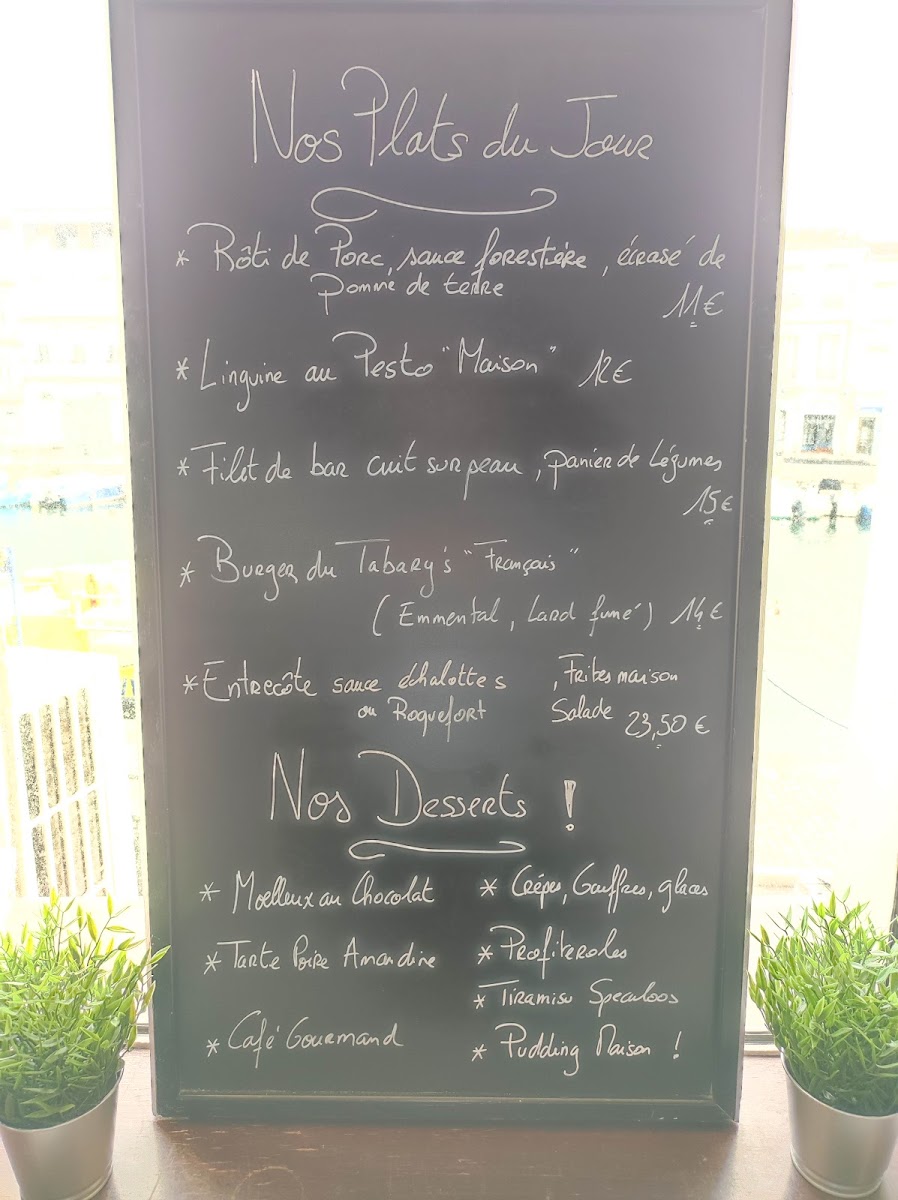 Nos Plats du Jour
* Rôti de Porc, sauce forestière, écrasé de
pomme de terre
11€
* Linguine au Pesto "Maison" 12€
* Filet de bar cuit sur peau, panier de Légumes
15€
* Burger du Tabary's "Français"
(Emmental, Lard fumé) 14€
* Entrecôte sauce échalottes , Frites maison
ou Roquefort Salade 23,50 €
Nos Desserts !
* Moelleux au Chocolat
* Crêpes, Gauffres, glaces
* Tarte Poire Amandine
* Profiteroles
* Tiramisu Speculoos
* Café Gourmand
* Pudding Maison !